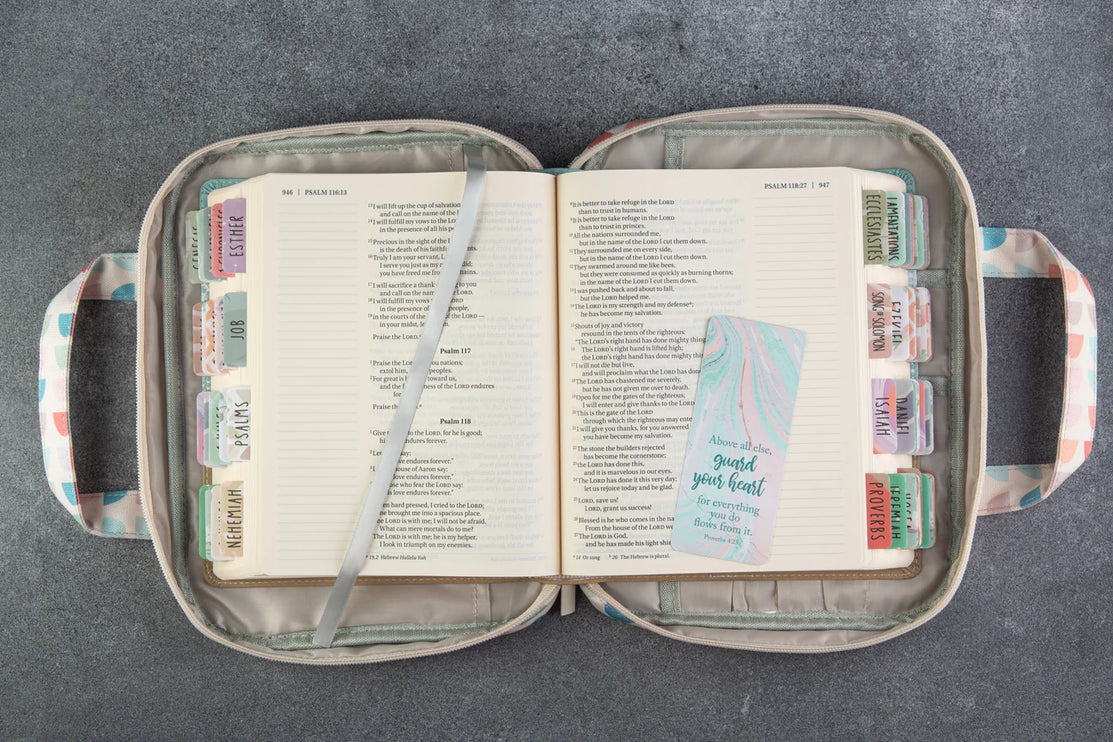 946 | PSALM 116:13
13I will lift up the cup of salvation
and call on the name of the
14I will fulfill my vows to the LORD
in the presence of all his
15Precious in the sight of the
is the death of his faithful
16Truly I am your servant,
I serve you just as my did;
you have freed me from chains.
17I will sacrifice a thank to you
and call on the name of the LORD.
18I will fulfill my vows to the LORD
in the presence of all people,
19in the courts of the of the LORD—
in your midst,
Praise the LORD.
Psalm 117
1Praise the LORD you nations;
extol him, peoples.
2For great is toward us,
and the of the LORD endures
Praise
Psalm 118
1Give to the LORD, for he is good;
his endures forever.
2Let say:
love endures forever."
3 house of Aaron say:
love endures forever."
who fear the LORD say:
love endures forever."
When hard pressed, I cried to the LORD;
he brought me into a spacious place.
The LORD is with me; I will not be afraid.
What can mere mortals do to me?
The LORD is with me; he is my helper.
I look in triumph on my enemies.
a 19,2 Hebrew Hallelu Yah
PSALM 118:27 | 947
8It is better to take refuge in the LORD
than to trust in humans.
9It is better to take refuge in the LORD
than to trust in princes.
10All the nations surrounded me,
but in the name of the LORD I cut them down.
11They surrounded me on every side,
but in the name of the LORD I cut them down.
12They swarmed around me like bees,
but they were consumed as quickly as burning thorns;
in the name of the LORD I cut them down.
13I was pushed back and about to fall,
but the LORD helped me.
14The LORD is my strength and my defense a;
he has become my salvation.
15Shouts of joy and victory
resound in the tents of the righteous:
"The LORD's right hand has done mighty things!
16The LORD's right hand is lifted high;
the LORD's right hand has done mighty
17I will not die but live,
and will proclaim what the LORD has done.
18The LORD has chastened me severely,
but he has not given me over to death.
19Open for me the gates of the righteous;
I will enter and give thanks to the LORD.
20This is the gate of the LORD
through which the righteous may enter.
21I will give you thanks, for you answered
you have become my salvation.
22The stone the builders rejected
has become the cornerstone;
23the LORD has done this,
and it is marvelous in our eyes.
24The LORD has done it this very day;
let us rejoice today and be glad.
25LORD, save us!
LORD, grant us success!
26Blessed is he who comes in the name
From the house of the LORD we
27The LORD is God,
and he has made his light shine
a 14 Or song b 26 The Hebrew is plural.
Above all else,
guard
your heart
for everything
you do
flows from it.
Proverbs 4:23
GENESIS
ESTHER
JOB
PSALMS
NEHEMIAH
ECCLESIASTES
LAMENTATIONS
SONG OF SOLOMON
EZEKIEL
ISAIAH
DANIEL
PROVERBS
JEREMIAH
HOSEA